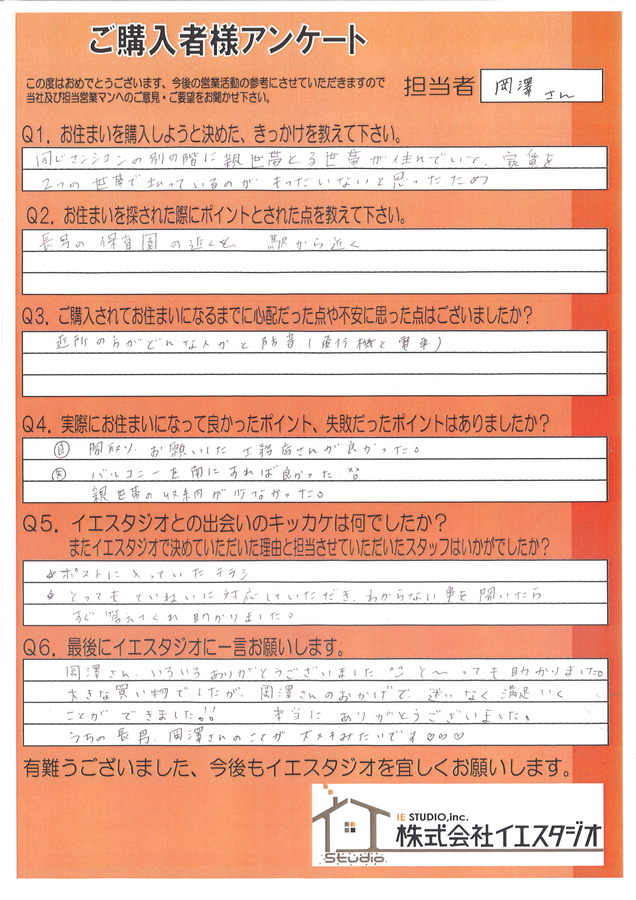 ご購入者様アンケート
この度はおめでとうございます、今後の営業活動の参考にさせていただきますので
当社及び担当営業マンへのご意見・ご要望をお聞かせ下さい。
担当者
岡澤さん
Q1. お住まいを購入しようと決めた、きっかけを教えて下さい。
同じマンションの別の階に親世帯と子世帯が住んでいて、家賃を
2つの世帯で払っているのがもったいないと思ったため
Q2. お住まいを探された際にポイントとされた点を教えて下さい。
長男の保育園の近くも 駅から近く
Q3. ご購入されてお住まいになるまでに心配だった点や不安に思った点はございましたか?
近所の方がどんな人かと防音(飛行機と電車)
Q4. 実際にお住まいになって良かったポイント、失敗だったポイントはありましたか?
良 間取り、お願いした工務店さんが良かった。
失 バルコニーを南にすれば良かった
親世帯の収納が少なかった。
Q5. イエスタジオとの出会いのキッカケは何でしたか?
またイエスタジオで決めていただいた理由と担当させていただいたスタッフはいかがでしたか?
ポストに入っていたチラシ
とってもていねいに対応していただき、わからない事を聞いたら
すぐ答えてくれ助かりました。
Q6. 最後にイエスタジオに一言お願いします。
岡澤さん、いろいろありがとうございました^^ と〜っても助かりました。
大きな買い物でしたが、岡澤さんのおかげで、迷いなく満足いく
ことができました!! 本当にありがとうございました。
うちの長男、岡澤さんのことが大スキみたいです♡♡♡
有難うございました、今後もイエスタジオを宜しくお願いします。
IE STUDIO,inc.
株式会社イエスタジオ
Studio